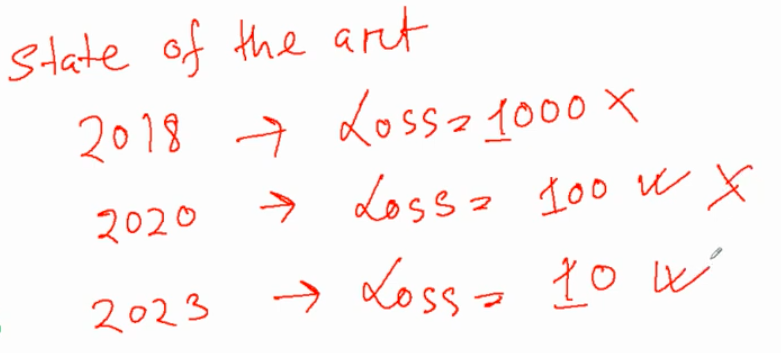 State of the art
2018 → Loss = 1000 X
2020 → Loss = 100 W X
2023 → Loss = 10 W